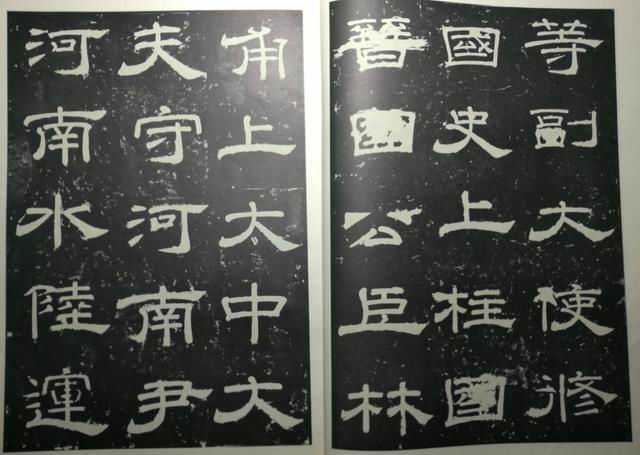 等副大使修
國史上柱國
晉國公臣林
甫上太中大
夫守河南尹
河南水陸運